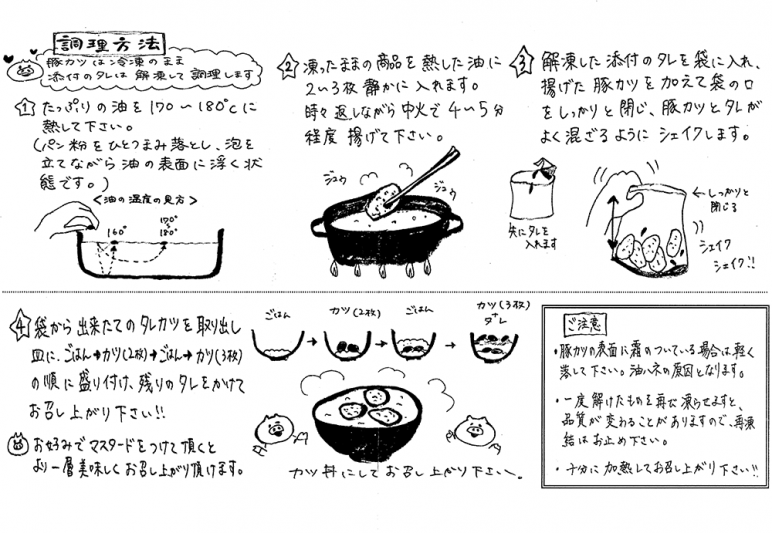 調理方法
豚カツは冷凍のまま
添付のタレは解凍して調理します
1 たっぷりの油を170〜180℃に
熱して下さい。
(パン粉をひとつまみ落とし、泡を
立てながら油の表面に浮く状
態です。)
<油の温度の見方>
160°
170°
180°
2 凍ったままの商品を熱した油に
2〜3枚静かに入れます。
時々返しながら中火で4〜5分
程度揚げて下さい。
ジュウ
ジュウ
3 解凍した添付のタレを袋に入れ、
揚げた豚カツを加えて袋の口
をしっかりと閉じ、豚カツとタレが
よく混ざるようにシェイクします。
先にタレを
入れます
←しっかりと
閉じる
シェイク
シェイク!!
4 袋から出来たてのタレカツを取り出し
皿に、ごはん→カツ(2枚)→ごはん→カツ(3枚)
の順に盛り付け、残りのタレをかけて
お召し上がり下さい!!
お好みでマスタードをつけて頂くと
より一層美味しくお召し上がり頂けます。
ごはん
カツ(2枚)
ごはん
カツ(3枚)
+
タレ
カツ丼にしてお召し上がり下さい。
ご注意
・豚カツの表面に霜のついている場合は軽く
落して下さい。油ハネの原因となります。
・一度解けたものを再び凍らせますと、
品質が変わることがありますので、再凍
結はお止め下さい。
・十分に加熱してお召し上がり下さい!!